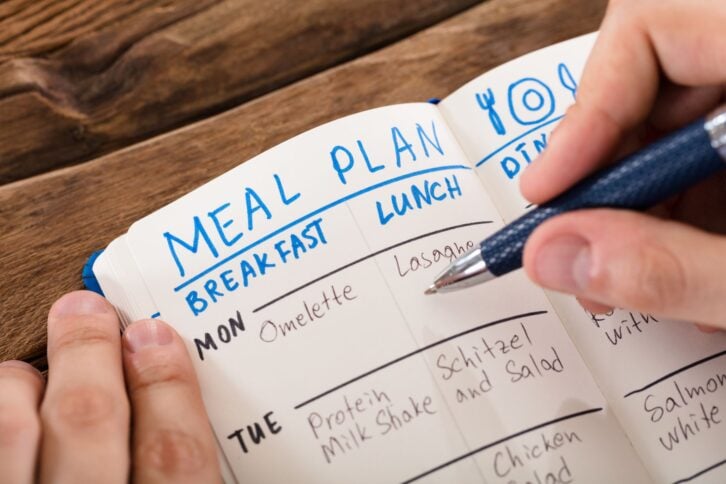 MEAL PLAN
BREAKFAST LUNCH DIN
MON Omelette Lasagne
with
TUE Protein
Milk Shake
Schitzel
and Salad
Salmon
white
Chicken
Salad